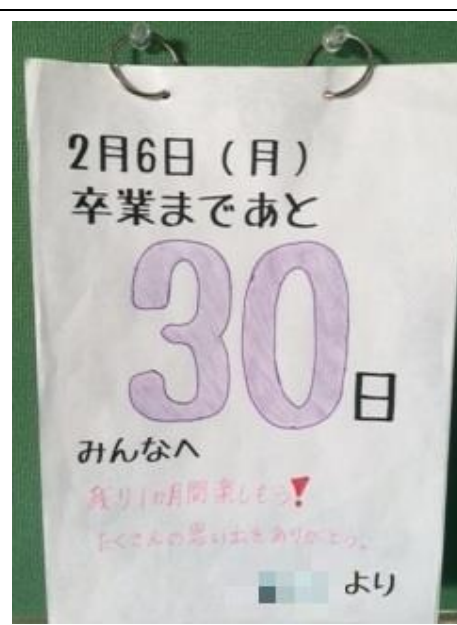 2月6日（月）
卒業まであと
30日
みんなへ
残り1か月間楽しもう！
たくさんの思い出をありがとう。
より